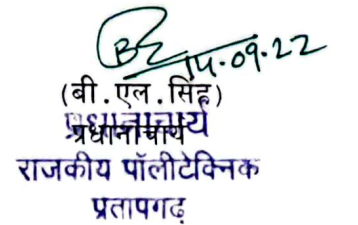 14.09.22
(बी.एल.सिंह)
प्रधानाचार्य
प्रधानाचार्य
राजकीय पॉलीटेक्निक
प्रतापगढ़